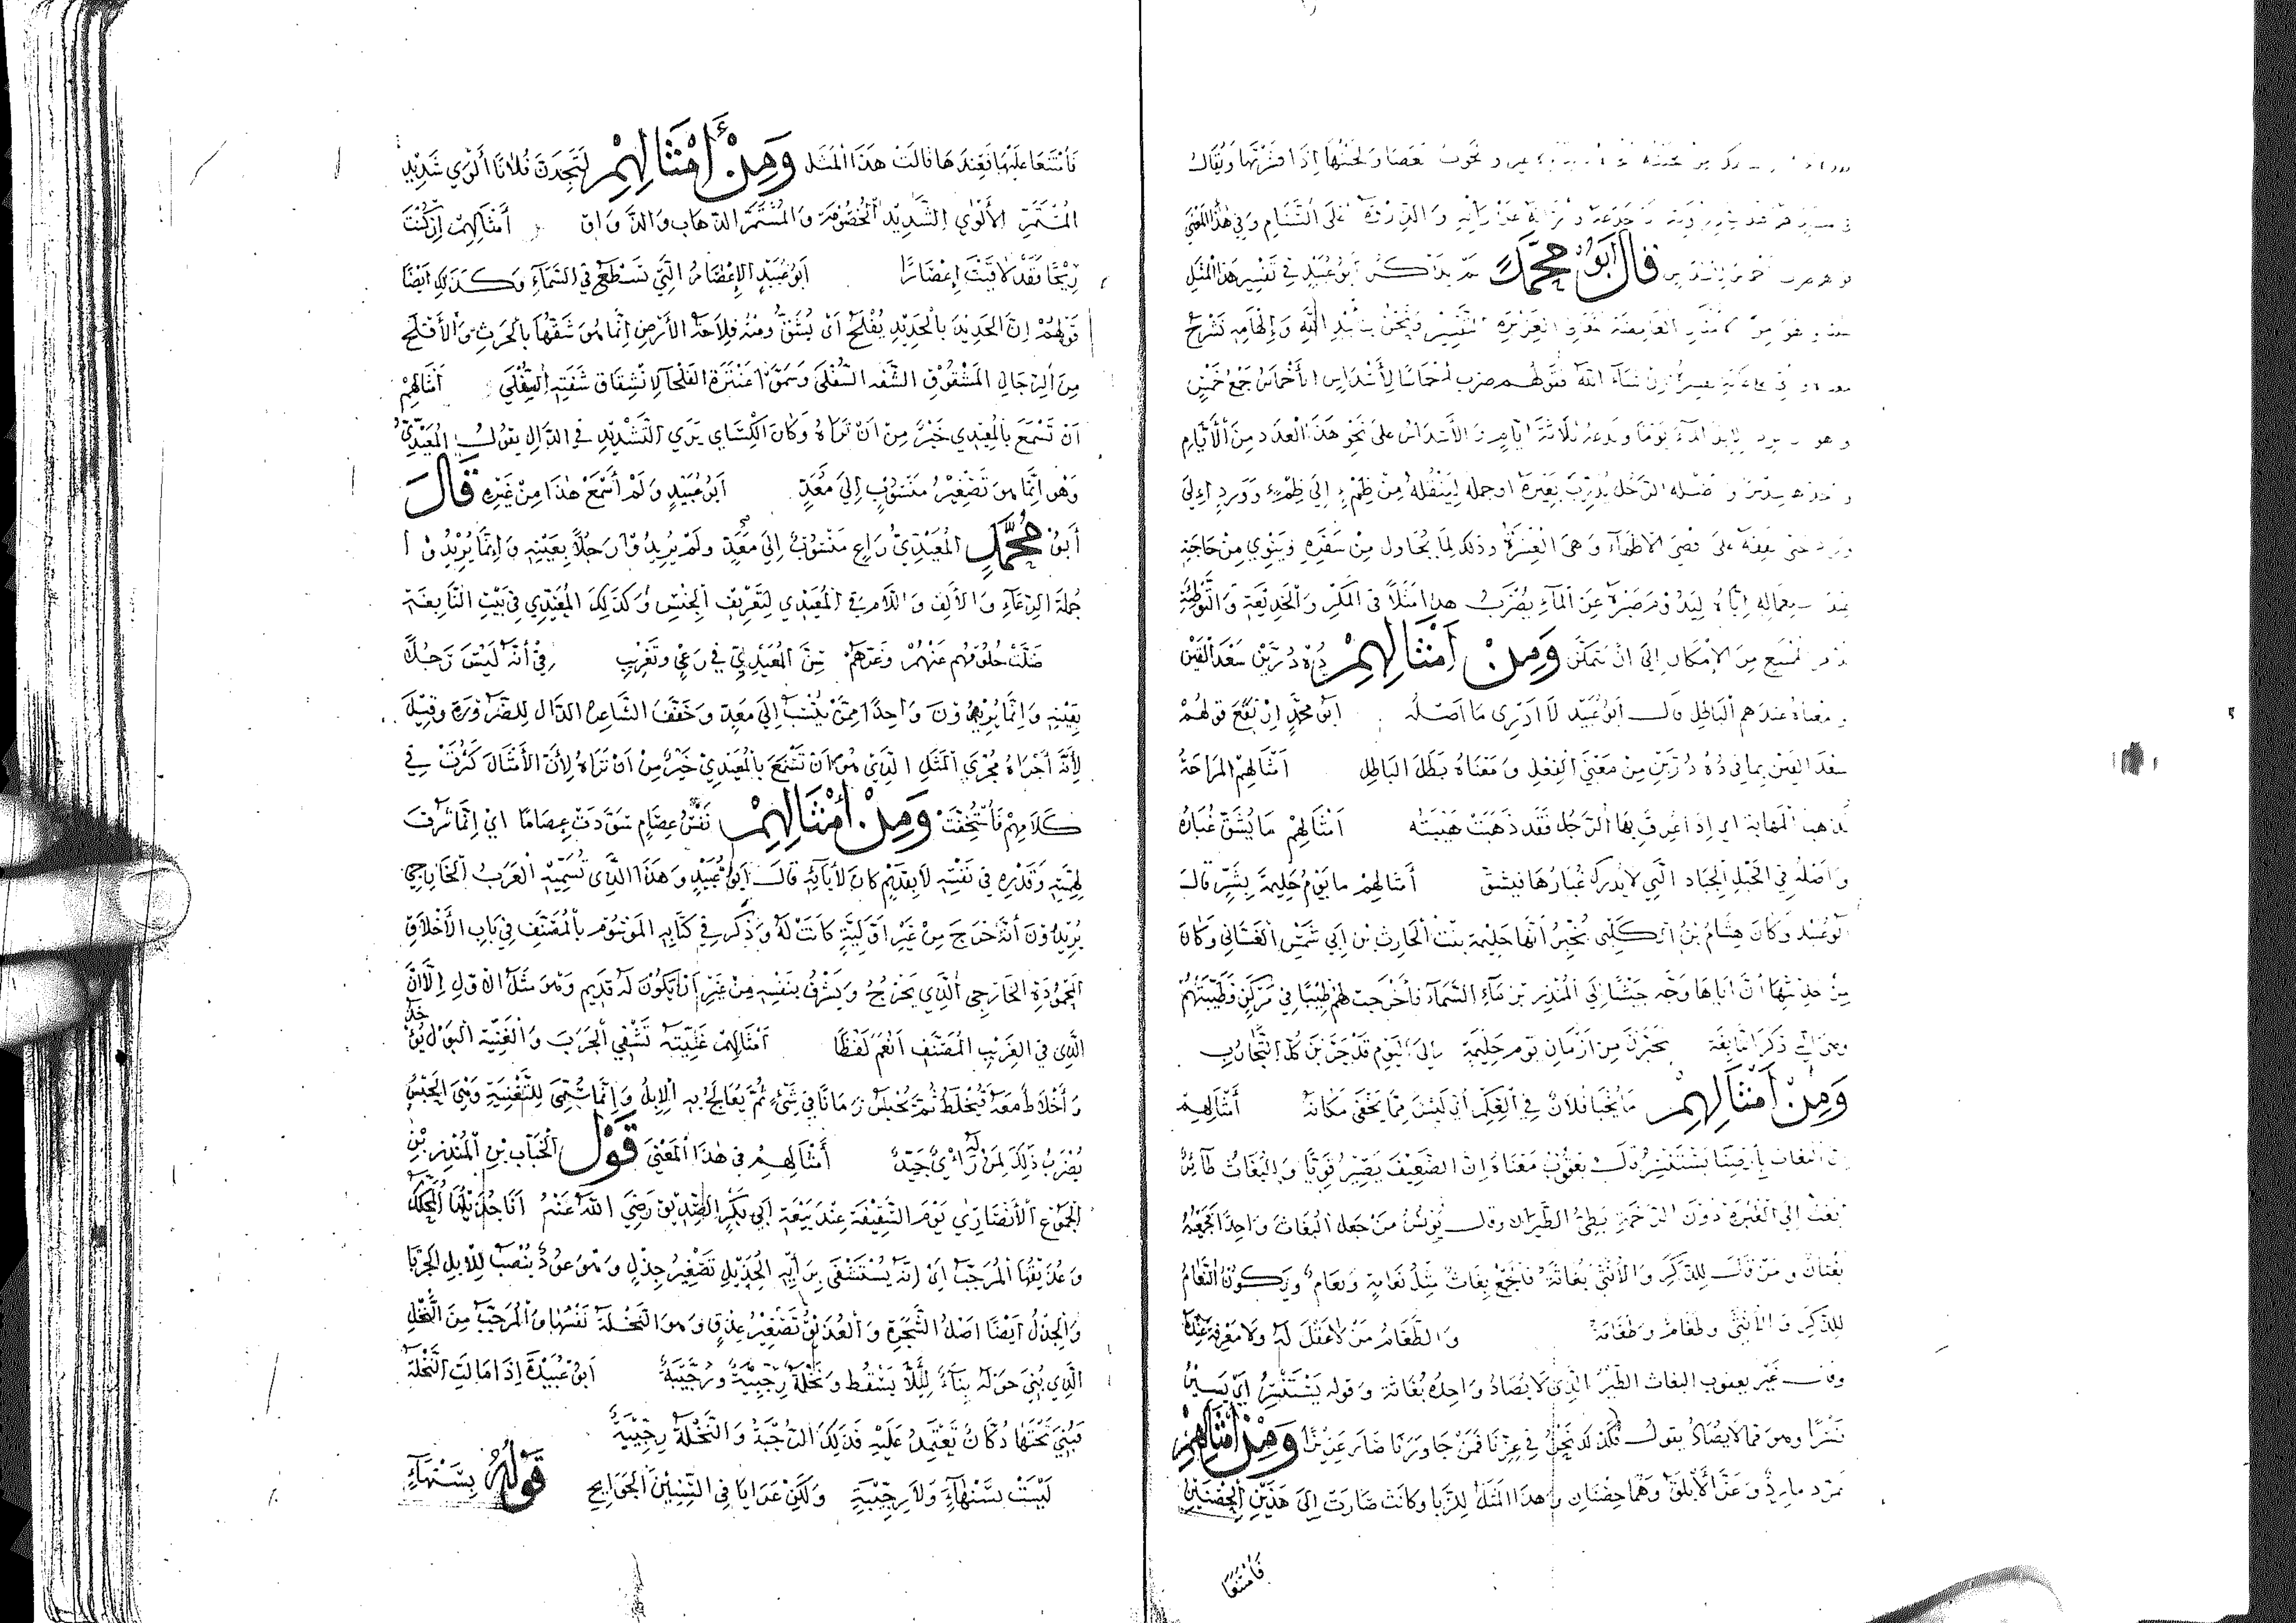 نحوت العصا ولحيتها إذا قشرتها ويقال
على التمام وفي هذا المعنى
قال أبو محمد أبو عبيد في تفسير هذا المثل
التفسير ونحن بتأييد الله وإلهامه نشرح
إن شاء الله فقولهم ضرب أخماسا لأسداس الأخماس جمع خمس
وهو الماء يوما ويدعه ثلاثة أيام والأسداس على نحو هذا العدد من الأيام
الرجل يدرب بعيره أو جمله لينقله من ظمء إلى ظمء وورد إلى
على الأظماء وهي العشرة وذلك لما يحاول من سفره وينوي من حاجة
إياه ليدوم صبره عن الماء يضرب هذا مثلا في المكر والخديعة والتوطئة
من الإمكان إلى أن يتمكن ومن أمثالهم دُه دُرّين سعد القين
ومعناه عندهم الباطل قال أبو عبيد لا أدري ما أصله أبو محمد قولهم
سعد القين بما في ده درين من معنى الفعل ومعناه بطل الباطل أمثالهم المزاحة
تذهب المهابة أي إذا عرف بها الرجل فقد ذهبت هيبته أمثالهم ما يشق غباره
وأصله في الخيل الجياد التي لا يدرك غبارها فيشق أمثالهم ما يوم حليمة بسر قال
أبو عبيد وكان هشام بن الكلبي يخبر أنها حليمة بنت الحارث بن أبي شمر الغساني وكان
من حديثها أن أباها وجه جيشا إلى المنذر بن ماء السماء فأخرجت لهم طيبا في مركن فطيبتهم
وهي التي ذكر النابغة تخيرن من أزمان يوم حليمة إلى اليوم قد جربن كل التجارب
ومن أمثالهم فلان في العكم أي ليس مما يخفى مكانه أمثالهم
إن البغاث بأرضنا يستنسر قال يعقوب معناه إن الضعيف يصير قويا والبغاث طائر
أبغث إلى الغبرة دون الرخمة بطيء الطيران وقال يونس من جعل البغاث واحدا فجمعه
بغثان ومن قال للذكر والأنثى بغاثة فالجمع بغاث مثل نعامة ونعام ويكون النعام
للذكر والأنثى وطغام وطغامة والطغام من لا عقل له ولا معرفة عنده
وقال غير يعقوب البغاث الطير الذي لا يصاد واحده بغاثة وقوله يستنسر أي يصير
نسرا وهو مما لا يصاد يقول فكذلك نحن في عزنا فمن جاورنا صار عزيزا ومن أمثالهم
تمرد مارد وعز الأبلق وهما حصنان وهذا المثل للزبا وكانت صارت إلى هذين الحصنين
فامتنعا
فامتنعا عليها فعندها قالت هذا المثل ومن أمثالهم لتجدن فلانا ألوى شديد
المستمر الألوى الشديد الخصومة والمستمر الذهاب أمثالهم إن كنت
ريحا فقد لاقيت إعصارا أبو عبيد الإعصار التي تسطع في السماء وكذلك أيضا
قولهم إن الحديد بالحديد يفلح أي يشق ومنه فلاحة الأرض إنما هو شقها بالحرث والأفلح
من الرجال المشقوق الشفة السفلى وسمي عنترة الفلحا لانشقاق شفته السفلى أمثالهم
أن تسمع بالمعيدي خير من أن تراه وكان الكسائي يرى التشديد في الدال يقول المعيدي
وهو إنما هو تصغير منسوب إلى معد أبو عبيد ولم أسمع هذا من غيره قال
أبو محمد المعيدي راع منسوب إلى معد ولم يريدوا رجلا بعينه وإنما يريدون
جملة الرعاء والألف واللام في المعيدي لتعريف الجنس وكذلك المعيدي في بيت النابغة
ضلت حلومهم عنهم وغرهم سن المعيدي في رعي وتعزيب في أنه ليس رجلا
بعينه وإنما يريدون واحدا ممن ينسب إلى معد وخفف الشاعر الدال للضرورة وقيل
لأنه أجراه مجرى المثل الذي هو أن تسمع بالمعيدي خير من أن تراه لأن الأمثال كثرت في
كلامهم فاستخفت ومن أمثالهم نفس عصام سودت عصاما أي إنما شرف
لهمته وقدره في نفسه لا بقديم كان لآبائه قال أبو عبيد وهذا الذي تسميه العرب الخارجي
يريدون أنه خرج من غير أولية كانت له وذكر في كتابه الموسوم بالمصنف في باب الأخلاق
المحمودة الخارجي الذي يخرج ويشرف بنفسه من غير أن يكون له قديم وهو مثل الأول إلا أن
الذي في الغريب المصنف أنعم لفظا أمثالهم عنيته تشفي الجرب والعنية البول يؤخذ
وأخلاط معه فيخلط ثم يحبس زمانا في شيء ثم يعالج به الإبل وإنما سمي للتعنية وهي الحبس
يضرب ذلك لمن له رأي جيد أمثالهم في هذا المعنى قول الحباب بن المنذر بن
الجموح الأنصاري يوم السقيفة عند بيعة أبي بكر الصديق رضي الله عنه أنا جذيلها المحكك
وعذيقها المرجب أي إنه يستشفى برأيه الجذيل تصغير جذل وهو عود ينصب للإبل الجربا
والجذل أيضا أصل الشجرة والعذيق تصغير عذق وهو النخلة نفسها والمرجب من النخل
الذي يبنى حوله بناء لئلا يسقط ونخلة رجبية ورجبية أبو عبيدة إذا مالت النخلة
فبني تحتها دكان تعتمد عليه فذلك الرجبة والنخلة رجبية
ليست بسنهاء ولا رجبية ولكن عرايا في السنين الجوايح قوله بسنهاء